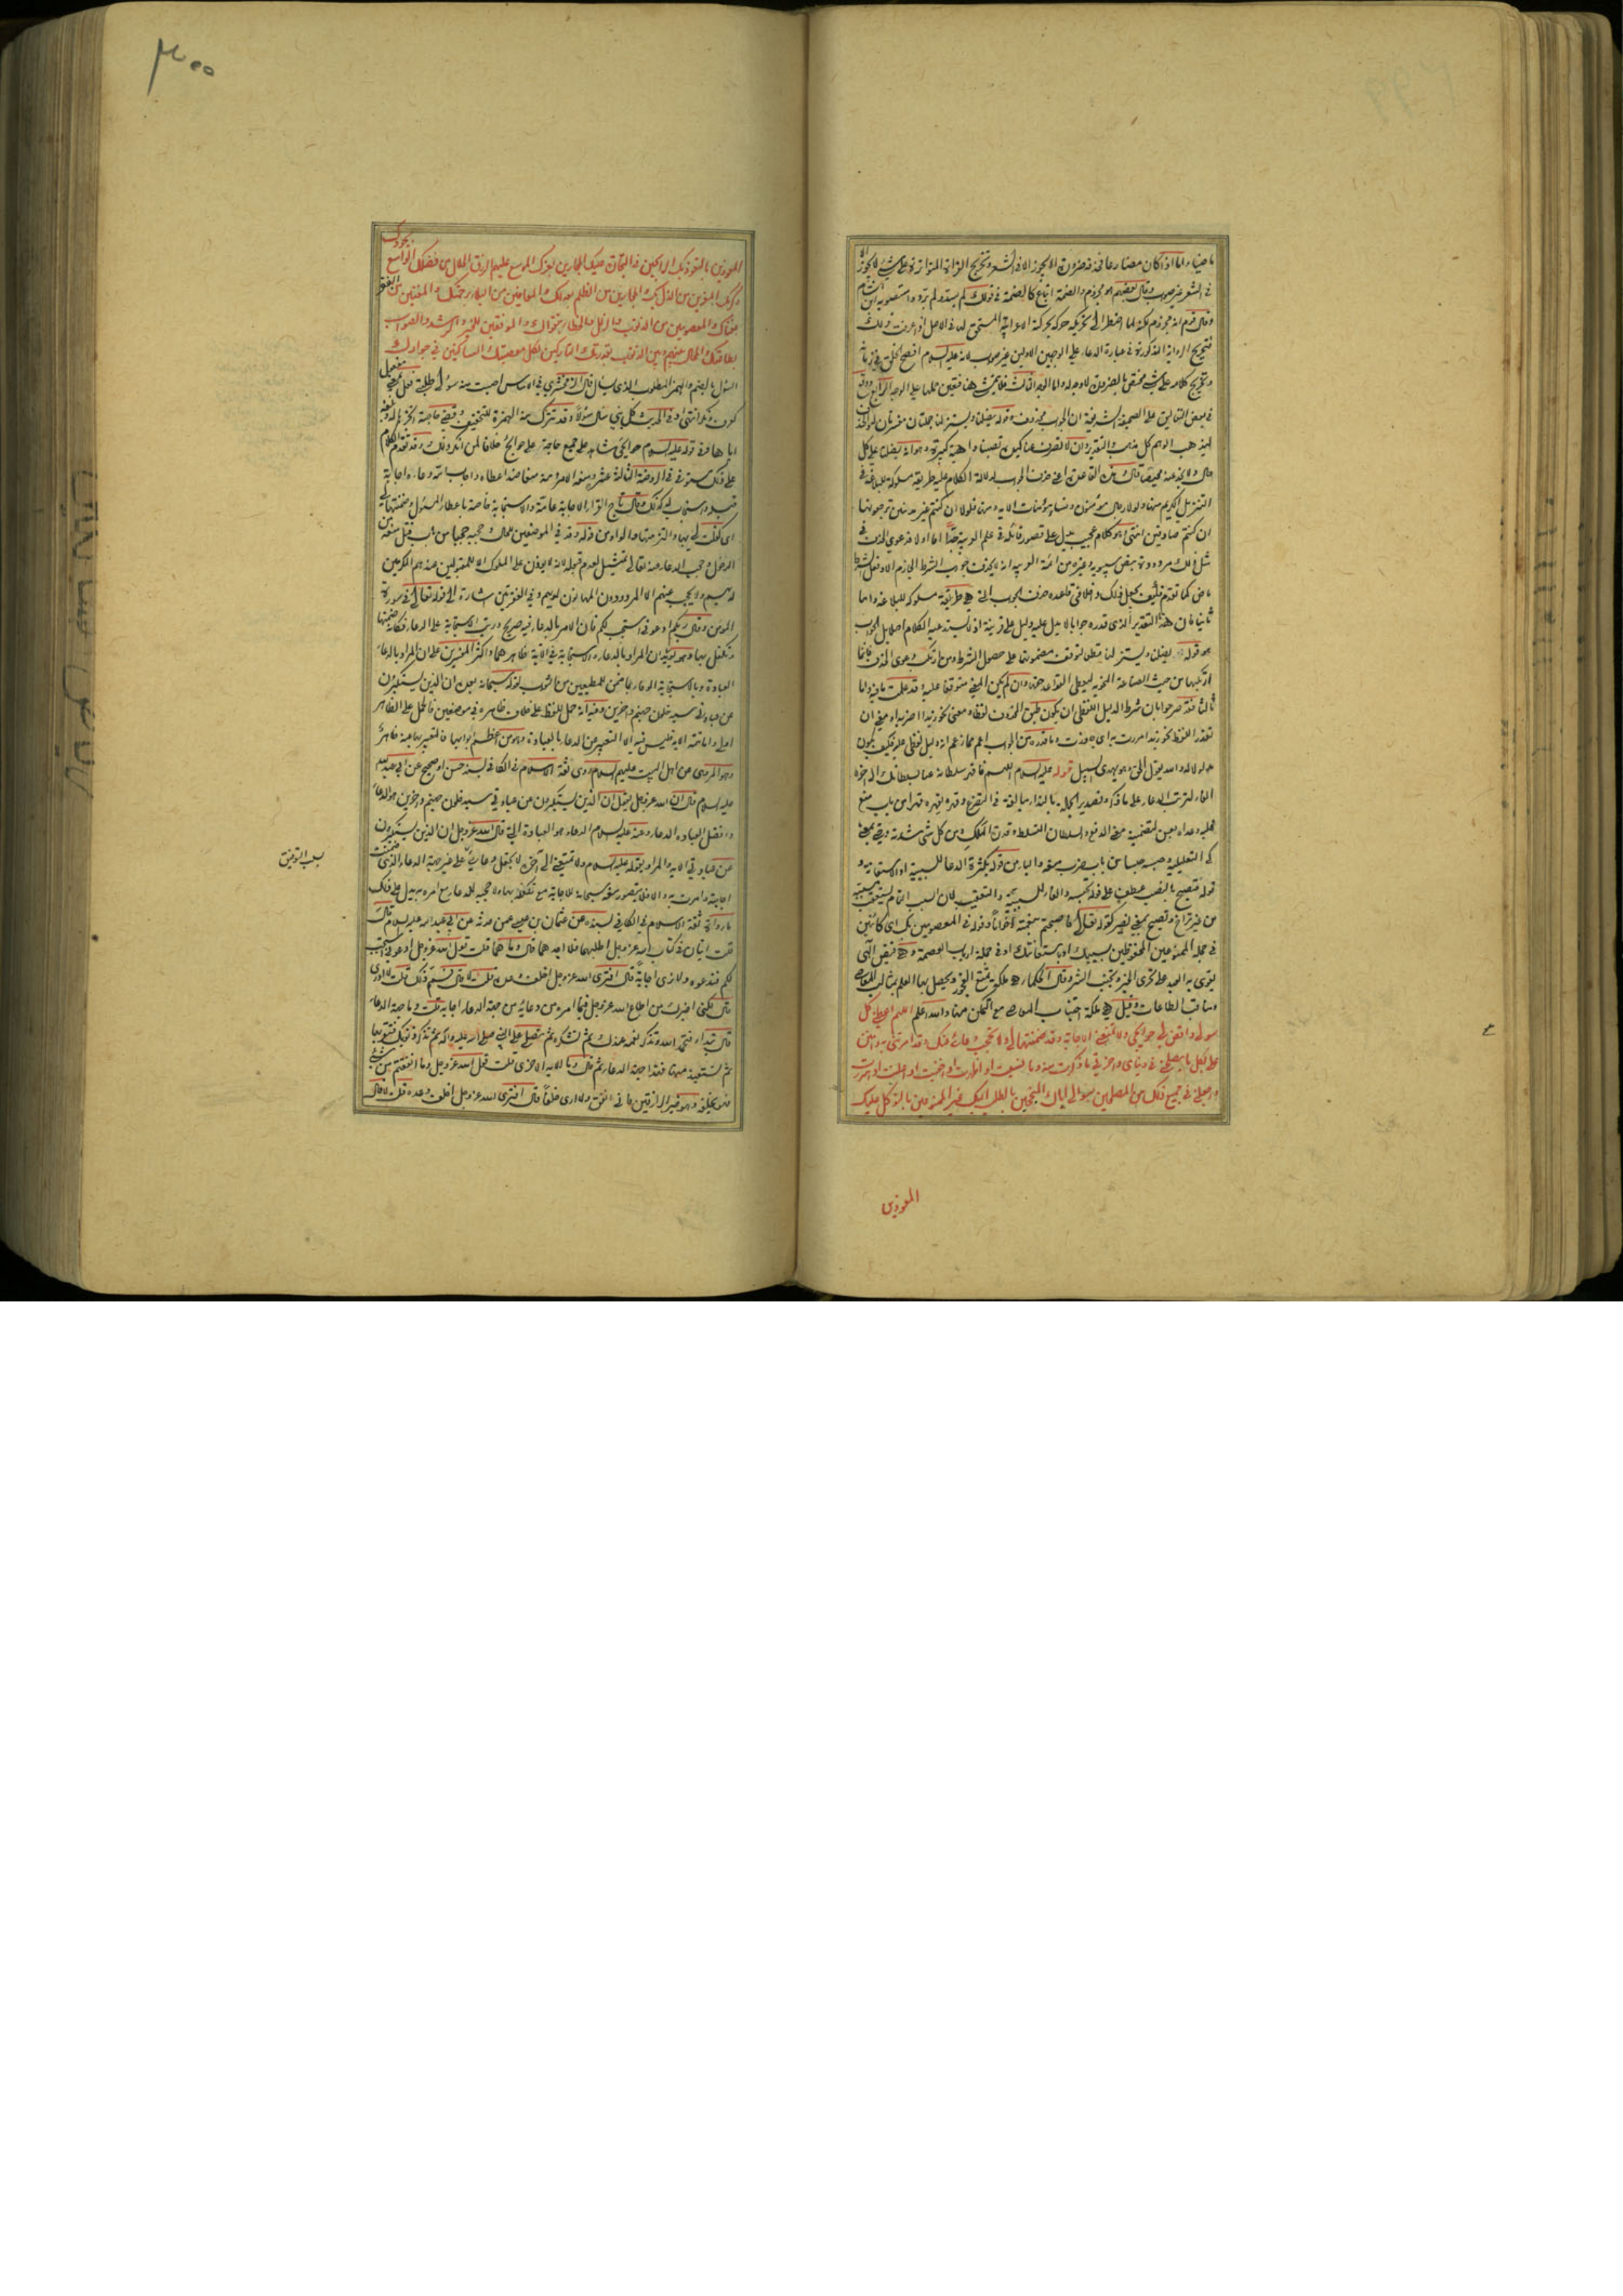 ماضيا واما اذا كان مضارعا فحذفه ضرورة لا يجوز الا في الشعر وتخريج الرواية المتواترة على شيء لا يجوز الا
في الشعر غير صواب وقال بعضهم هو مجزوم والضمة اتباع كالضمة في قولك لم يشده ولم يرده
وقال قوم انه مجزوم لكنه لما اضطر الى تحريكه حركه بحركة الاعرابية المستحق لها في الاصل اذا عرفت ذلك
فتخريج الرواية المذكورة في عبارة الدعاء على الوجهين الاولين غير صواب لانه عليه السلام افصح الخلق في زمانه
في بعض التعاليق على الصحيفة الشريفة ان الجواب محذوف وقوله يضلنا ويستزلنا جملتان مفسرتان للمحذوف
التنزيل الكريم منها ولولا رجال مؤمنون ونساء مؤمنات الاية ومنها فلولا ان كنتم غير مدينين ترجعونها
ان كنتم صادقين انتهى وهو كلام عجيب يدل على قصور قائله في علم العربية جدا اما اولا فدعوى الحذف في
مثل ذلك مردودة بنص سيبويه وغيره من ائمة العربية انه لا يحذف جواب الشرط الجازم الا وفعل الشرط
ماض كما تقدم فكيف يجعل ذلك داخلا في قاعدة حذف الجواب التي هي طريقة مسلوكة للبلاغة واما
ثانيا فان هذا التقدير الذي قدره جوابا لا يدل عليه دليل ولا قرينة اذ لا يستدعيه الكلام اصلا بل الجواب
هو قوله يضلنا ويستزلنا قطعا لتوقف مضمونها على حصول الشرط ومن ارتكب دعوى الحذف فانما
ارتكبها من حيث الصناعة النحوية ليعطى القواعد حقها وان لم يكن المعنى متوقفا عليه وقد علمت ما فيه واما
ثالثا فقد صرحوا بان شرط الدليل اللفظي ان يكون طبق المحذوف لفظا ومعنى نحو زيدا اضربه او معنى ان
تعذر اللفظ نحو زيدا امرر به اي جاوزت وما قدره من الجواب اعم مما زعم انه دليل لفظي عليه فكيف يكون
مدلولا له والله يقول الحق وهو يهدي السبيل قوله عليه السلام اللهم فاقهر سلطانه عنا بسلطانك الى اخره
الفاء لترتب الدعاء على ما ذكره وتصدير الجملة بالنداء مبالغة في التضرع وقهره يقهره قهرا من باب منع
غلبه وعداه بعن لتضمنه معنى الدفع والسلطان التسلط وقدرة الملك ومن كل شيء شدته وحتى بمعنى
كي التعليلية وحبسه حبسا من باب ضرب منعه والباء من قوله بكثرة الدعاء للسببية او الاستعانة و
قوله فنصبح بالنصب عطف على قوله تحبسه والفاء للسببية والتعقيب لان السبب التام يستعقب مسببه
من غير تراخ ونصبح بمعنى نصير كقوله تعالى فاصبحتم بنعمته اخوانا وقوله في المعصومين بك اي كائنين
في جملة الممنوعين المحفوظين بسببك او باستعانتك او في جملة ارباب العصمة وهي فيض الهي
يقوى به العبد على تحري الخير وتجنب الشر وقال الحكماء هي ملكة تمنع الفجور ويحصل بها العلم بمثالب المعاصي
ومناقب الطاعات وقيل هي ملكة اجتناب المعاصي مع التمكن منها والله اعلم اللهم اعطني كل
سؤلي واقض لي حوائجي ولا تمنعني الاجابة وقد ضمنتها لي ولا تحجب دعائي عنك وقد امرتني به وامنن
علي بكل ما يصلحني في دنياي واخرتي ما ذكرت منه وما نسيت او اظهرت او اخفيت او اعلنت او اسررت
واجعلني في جميع ذلك من المصلحين بسؤالي اياك المنجحين بالطلب اليك غير الممنوعين بالتوكل عليك
المعوذين
٣٠٠
المعوذين بالتعوذ بك الرابحين في التجارة عليك المجارين بعزك الموسع عليهم الرزق الحلال من فضلك الواسع بجودك
وكرمك المعزين من الذل بك والمجارين من الظلم بعدلك والمعافين من البلاء برحمتك والمغنين من الفقر
بغناك والمعصومين من الذنوب والزلل والخطاء بتقواك والموفقين للخير والرشد والصواب
بطاعتك والمحال بينهم وبين الذنوب بقدرتك التاركين لكل معصيتك الساكنين في جوارك
السؤل بالضم والهمز المطلوب الذي يسأل قال الزمخشري في الاساس اصبت منه سؤلي اي طلبتي فعل بمعنى مفعول
اياها وفي قوله عليه السلام حوائجي شاهد على جمع حاجة على حوائج خلافا لمن انكر ذلك وقد تقدم الكلام
على ذلك مستوفى في الروضة الثالثة عشر ومنعه الامر ومنه منعا ضد اعطاه واجاب الله دعاءه اجابة
قبله واستجاب له كذلك وقال تاج القراء الاجابة عامة والاستجابة خاصة باعطاء المسئول وضمنتها لي
اي كفلت لي بها والتزمتها والواو من قوله وقد في الموضعين للحال وحجبه حجبا من باب قتل منعه من
الدخول وحجب الدعاء عنه تعالى تمثيل لعدم قبوله لانه لا يؤذن على الملوك الا للمقبولين عندهم المكرمين
لديهم ولا يحجب عنهم الا المردودون المهانون لديهم وفي الفقرتين اشارة الى قوله تعالى في سورة
المؤمن وقال ربكم ادعوني استجب لكم فان الامر بالدعاء فيه صريح ورتب الاستجابة على الدعاء فكانه ضمنها
وتكفل بها وهو يؤيد ان المراد بالدعاء والاستجابة في الاية ظاهرهما واكثر المفسرين على ان المراد بالدعاء
العبادة وبالاستجابة الوفاء بما ضمن للمطيعين من الثواب لقوله سبحانه بعده ان الذين يستكبرون
عن عبادتي سيدخلون جهنم داخرين وفيه انه حمل للفظ على خلاف ظاهره في موضعين فالحمل على الظاهر
اولى واما تتمة الاية فليس فيها الا التعبير عن الدعاء بالعبادة وهو من اعظم ابوابها فالتعبير بها عنه ظاهر
وهو المروي عن اهل البيت عليهم السلام روى ثقة الاسلام في الكافي بسند حسن او صحيح عن ابي عبد الله
عليه السلام قال ان الله عز وجل يقول ان الذين يستكبرون عن عبادتي سيدخلون جهنم داخرين هو الدعاء
وافضل العبادة الدعاء وعنه عليه السلام الدعاء هو العبادة التي قال الله عز وجل ان الذين يستكبرون
عن عبادتي الاية والمراد بقوله عليه السلام ولا تمنعني الى اخره لا تجعل دعائي على غير جهة الدعاء الذي ضمنت
اجابته وامرت به والا فلا يتصور منعه سبحانه للاجابة مع تكفله بها ولا حجبه للدعاء مع امره به يدل على ذلك
ما رواه ثقة الاسلام في الكافي بسنده عن عثمان بن عيسى عمن حدثه عن ابي عبد الله عليه السلام قال
قلت ايتان في كتاب الله عز وجل اطلبهما فلا اجدهما قال وما هما قلت قول الله عز وجل ادعوني استجب
لكم فندعوه ولا نرى اجابة قال افترى الله عز وجل اخلف وعده قلت لا قال فمم ذلك قلت لا ادري
قال لكني اخبرك من اطاع الله عز وجل فيما امره من دعائه من جهة الدعاء اجابه قلت وما جهة الدعاء
قال تبدأ فتحمد الله وتذكر نعمه عندك ثم تشكره ثم تصلي على النبي صلى الله عليه واله ثم تذكر ذنوبك فتقر بها
ثم تستعيذ منها فهذا جهة الدعاء ثم قال وما الاية الاخرى قلت قول الله عز وجل وما انفقتم من شيء
فهو يخلفه وهو خير الرازقين فاني انفق ولا ارى خلفا قال افترى الله عز وجل اخلف وعده قلت لا قال